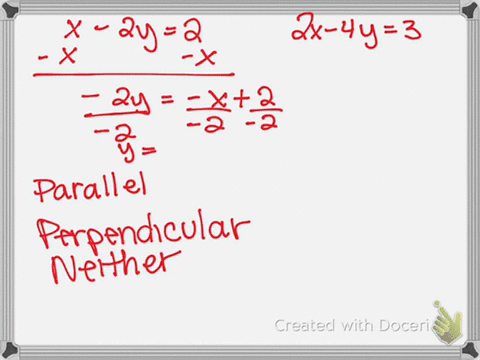 x - 2y = 2
-x -x
-2y = -x + 2
-2 -2 -2
y =
2x - 4y = 3
Parallel
Perpendicular
Neither
Created with Doceri